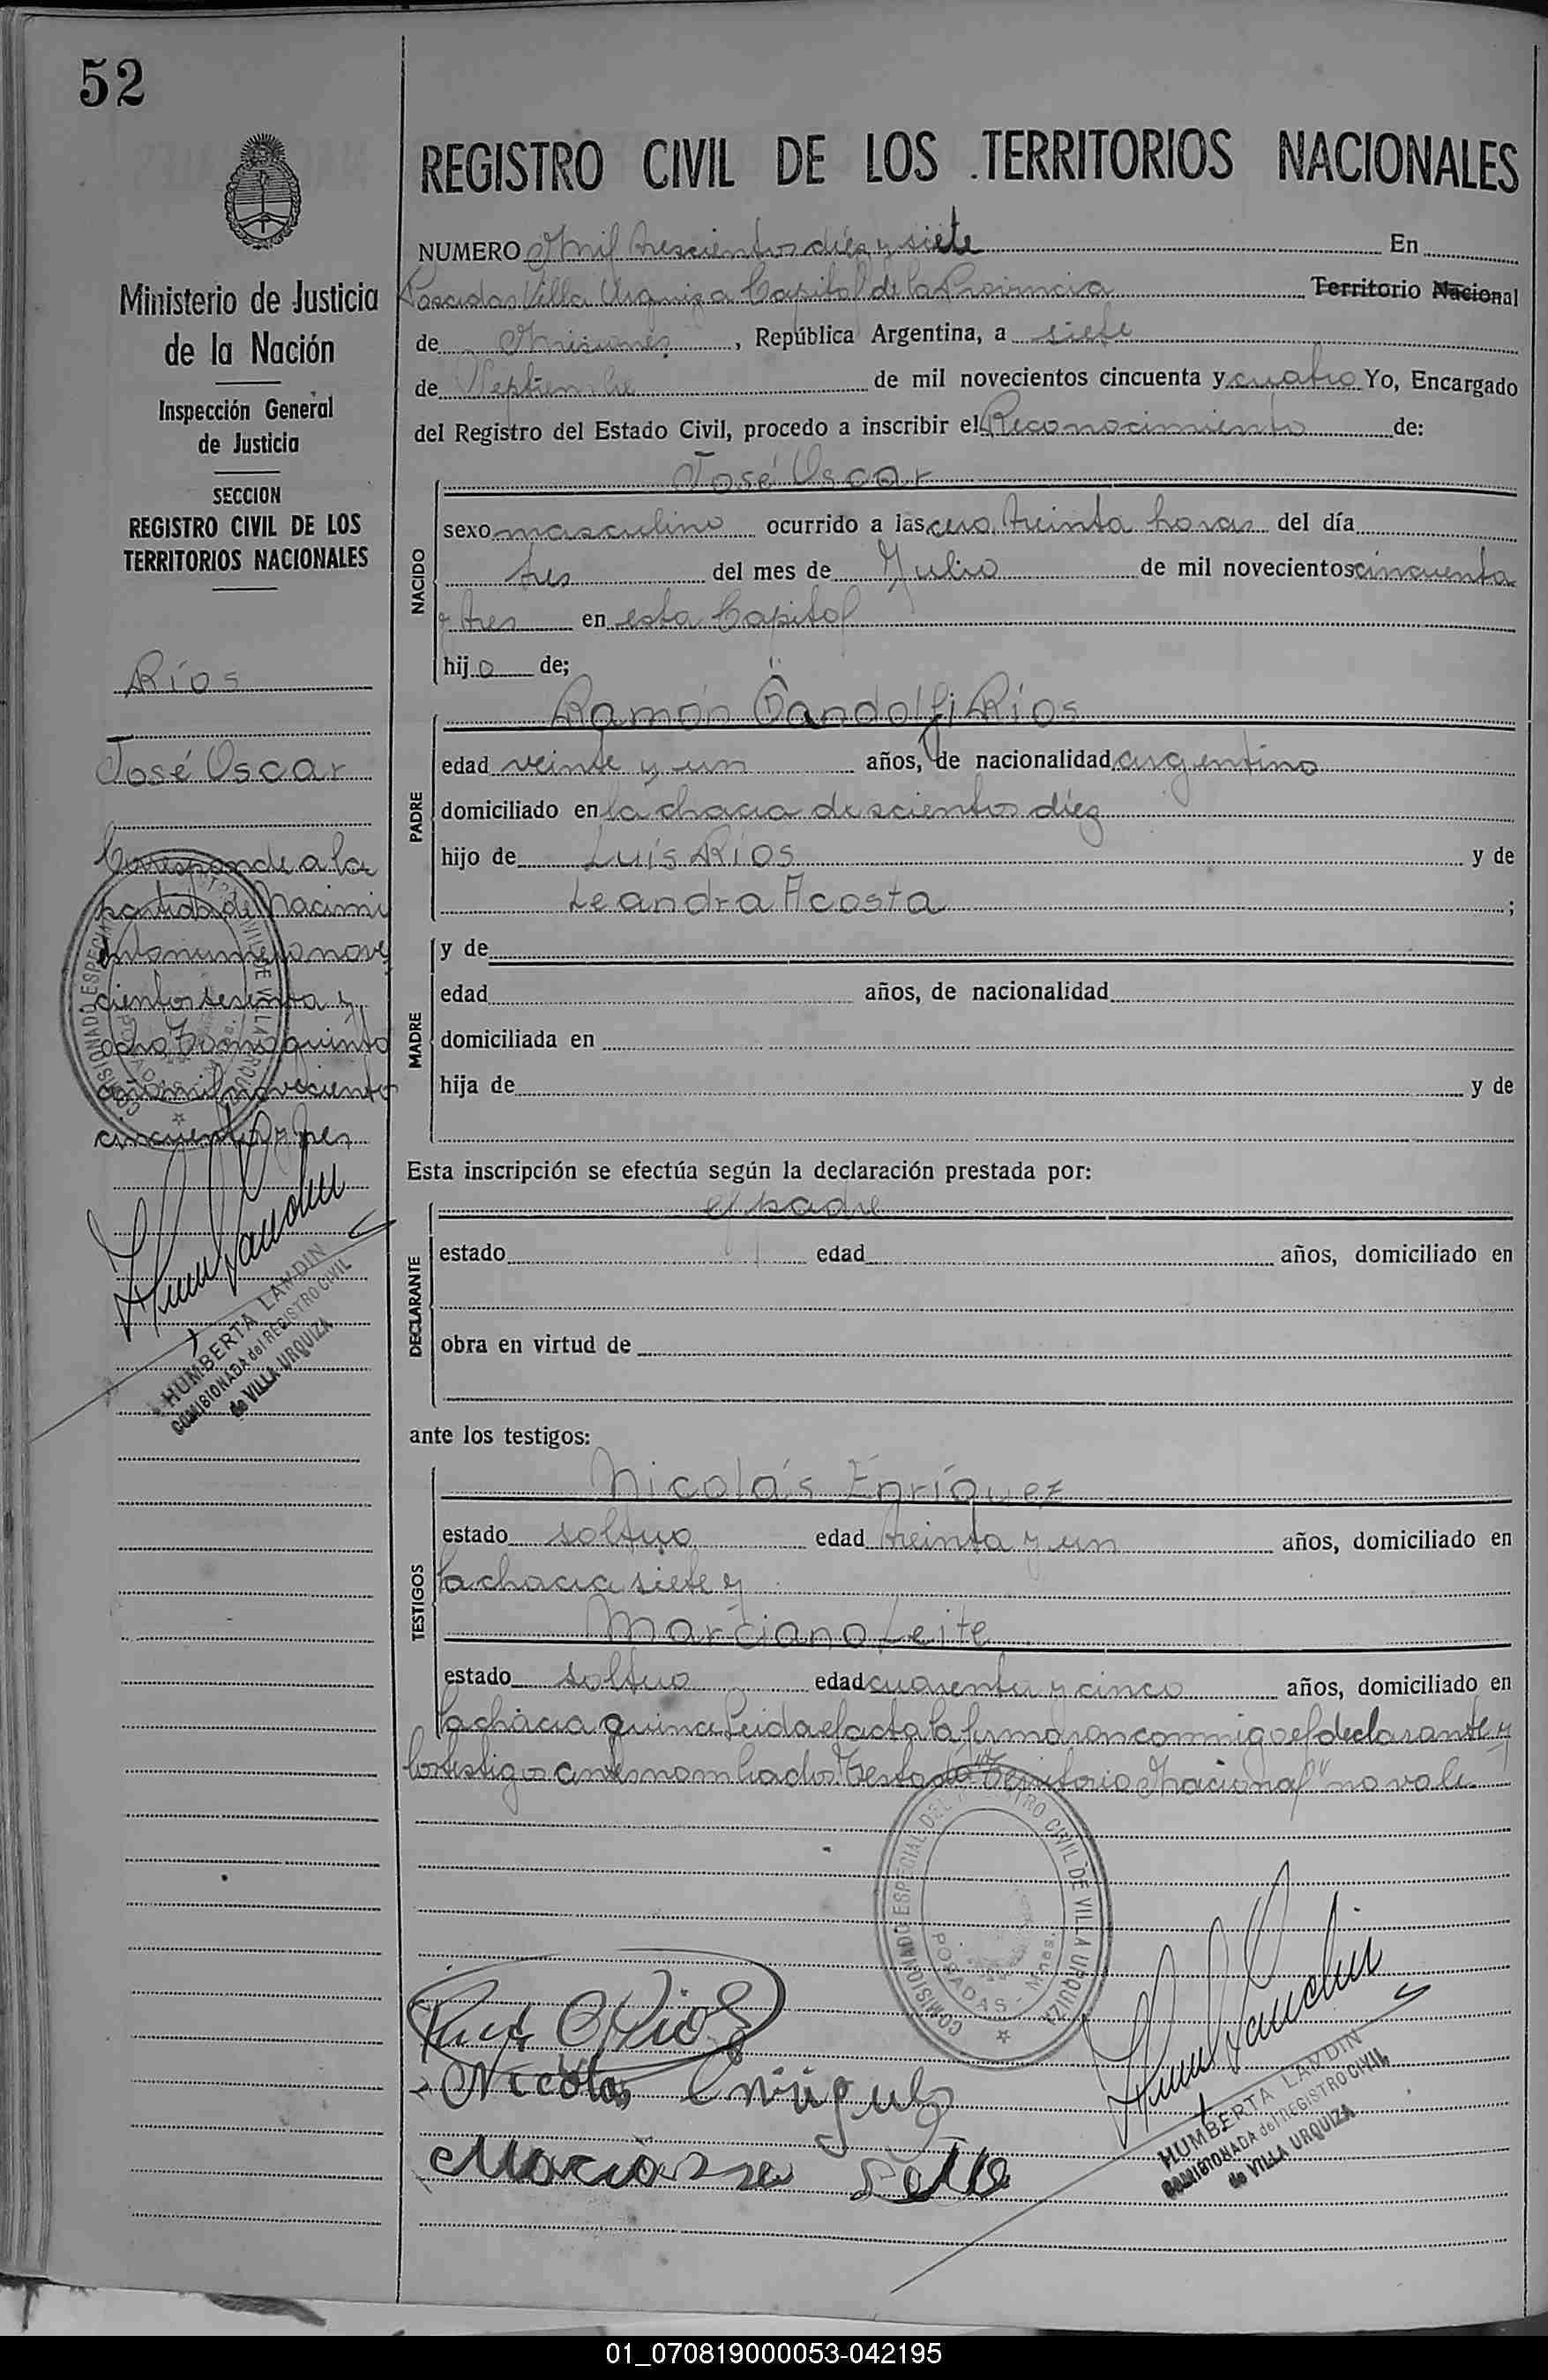 52
REGISTRO CIVIL DE LOS TERRITORIOS NACIONALES
Ministerio de Justicia
de la Nación
Inspección General
de Justicia
SECCION
REGISTRO CIVIL DE LOS
TERRITORIOS NACIONALES
Ríos
José Oscar
Corresponde a la
partida de Nacimi
ento numero nove
cientos sesenta y
ocho Tomo quinto
año mil novecientos
cincuenta y tres
HUMBERTA LANDIN
COMISIONADA del REGISTRO CIVIL
de VILLA URQUIZA
NUMERO Mil trescientos diéz y siete En
Posadas Villa Urquiza Capital de la Provincia Territorio Nacional
de Misiones, República Argentina, a siete
de Septiembre de mil novecientos cincuenta y cuatro Yo, Encargado
del Registro del Estado Civil, procedo a inscribir el Reconocimiento de:
NACIDO
José Oscar
sexo masculino ocurrido a las cero treinta horas del día
tres del mes de Julio de mil novecientos cincuenta
y tres en esta Capital
hijo de;
PADRE
Ramón Gandolfi Ríos
edad veinte y un años, de nacionalidad argentino
domiciliado en la chacra doscientos diéz
hijo de Luís Ríos y de
Leandra Acosta;
MADRE
y de
edad años, de nacionalidad
domiciliada en
hija de y de
Esta inscripción se efectúa según la declaración prestada por:
DECLARANTE
el padre
estado edad años, domiciliado en
obra en virtud de
ante los testigos:
TESTIGOS
Nicolás Enríquez
estado soltero edad treinta y un años, domiciliado en
la chacra siete y
Marciano Leite
estado soltero edad cuarenta y cinco años, domiciliado en
la chacra quince Leida el acta la firmaron conmigo el declarante y
los testigos antes nombrados. Testado "Territorio Nacional" no vale
COMISIONADO ESPECIAL DEL REGISTRO CIVIL DE VILLA URQUIZA
POSADAS - Mnes.
Nicolas Enriquez
Marciano Leite
HUMBERTA LANDIN
COMISIONADA del REGISTRO CIVIL
de VILLA URQUIZA
01_070819000053-042195